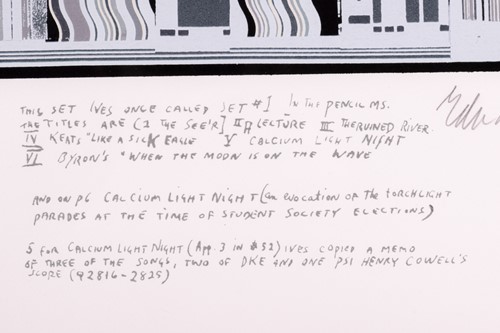 THIS SET IVES ONCE CALLED SET #1 IN THE PENCIL MS.
THE TITLES ARE (I THE SEE'R] II A LECTURE III THE RUINED RIVER.
IV KEATS "LIKE A SICK EAGLE V CALCIUM LIGHT NIGHT
VI BYRON'S "WHEN THE MOON IS ON THE WAVE
AND ON P6 CALCIUM LIGHT NIGHT (an EVOCATION OF THE TORCHLIGHT
PARADES AT THE TIME OF STUDENT SOCIETY ELECTIONS)
5 FOR CALCIUM LIGHT NIGHT (App. 3 IN #52) IVES COPIED A MEMO
OF THREE OF THE SONGS, TWO OF DKE AND ONE PSI HENRY COWELL'S
SCORE (92816-2825)